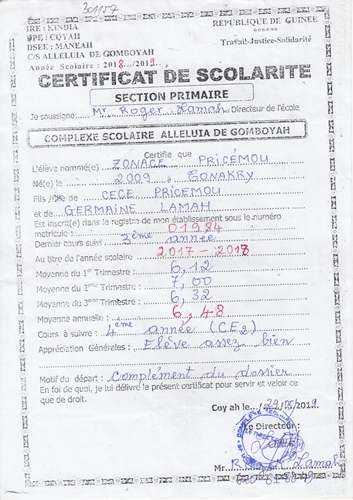 30107
IRE : KINDIA
REPUBLIQUE DE GUINEE
DPE : COYAH
******
DSEE : MANEAH
Travail-Justice-Solidarité
C/S ALLELUIA DE GOMBOYAH
Année Scolaire : 2018../2019..
CERTIFICAT DE SCOLARITE
SECTION PRIMAIRE
Je soussigné Mr. Roger Lamah Directeur de l'école
COMPLEXE SCOLAIRE ALLELUIA DE GOMBOYAH
Certifie que
L'élève nommé(e) ZONACE PRICÉMOU
Né(e) le 2009 à CONAKRY
Fils de CECE PRICEMOU
et de GERMAINE LAMAH
Est inscrit(e) dans le registre de mon établissement sous le numéro
matricule : 01984
Dernier cours suivi 3ème année
Au titre de l'année scolaire 2017 - 2018
Moyenne du 1er Trimestre : 6,12
Moyenne du 2ème Trimestre : 7,00
Moyenne du 3ème Trimestre : 6,32
Moyenne annuelle : 6,48
Cours à suivre : 4ème année (CE2)
Appréciation Générales : Elève assez bien
Motif du départ : Complément du dossier
En foi de quoi, je lui délivre le présent certificat pour servir et valoir ce
que de droit.
Coyah le
Le Directeur :
Mr. Roger Lamah